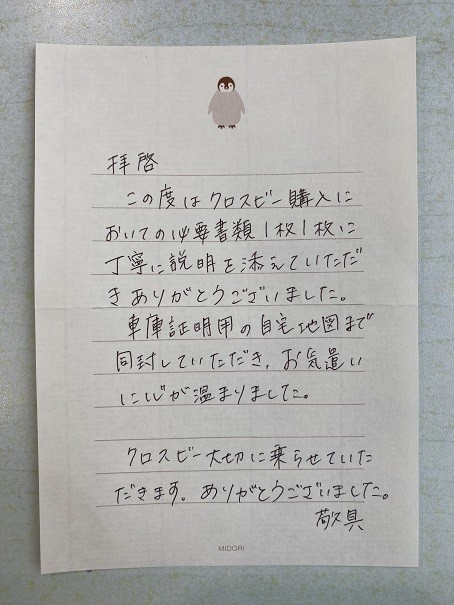 拝啓
この度はクロスビー購入に
おいての必要書類1枚1枚に
丁寧に説明を添えていただ
きありがとうございました。
車庫証明用の自宅地図まで
同封していただき、お気遣い
に心が温まりました。
クロスビー大切に乗らせていた
だきます。ありがとうございました。
敬具
MIDORI